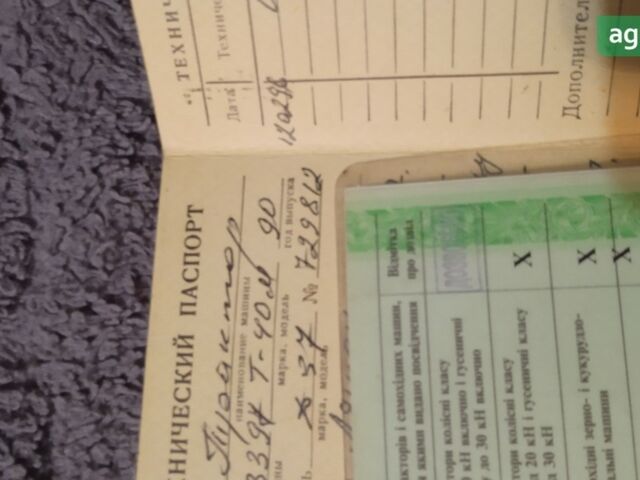 ag
"ТЕХНИЧ
Дата
Техниче
Дополнител
НИЧЕСКИЙ ПАСПОРТ
Трактор
наименование машины
Т-40М 90
марка, модель
год выпуска
37 № 729812
марка, модель
акторів і самохідних машин,
и якими видано посвідчення
Відмітка
про дозвіл
тори колісні класу
0 кН включно і гусеничні
у до 30 кН включно
тори колісні класу
20 кН і гусеничні класу
30 кН
X
охідні зерно- і кукурудзо-
альні машини
X
X